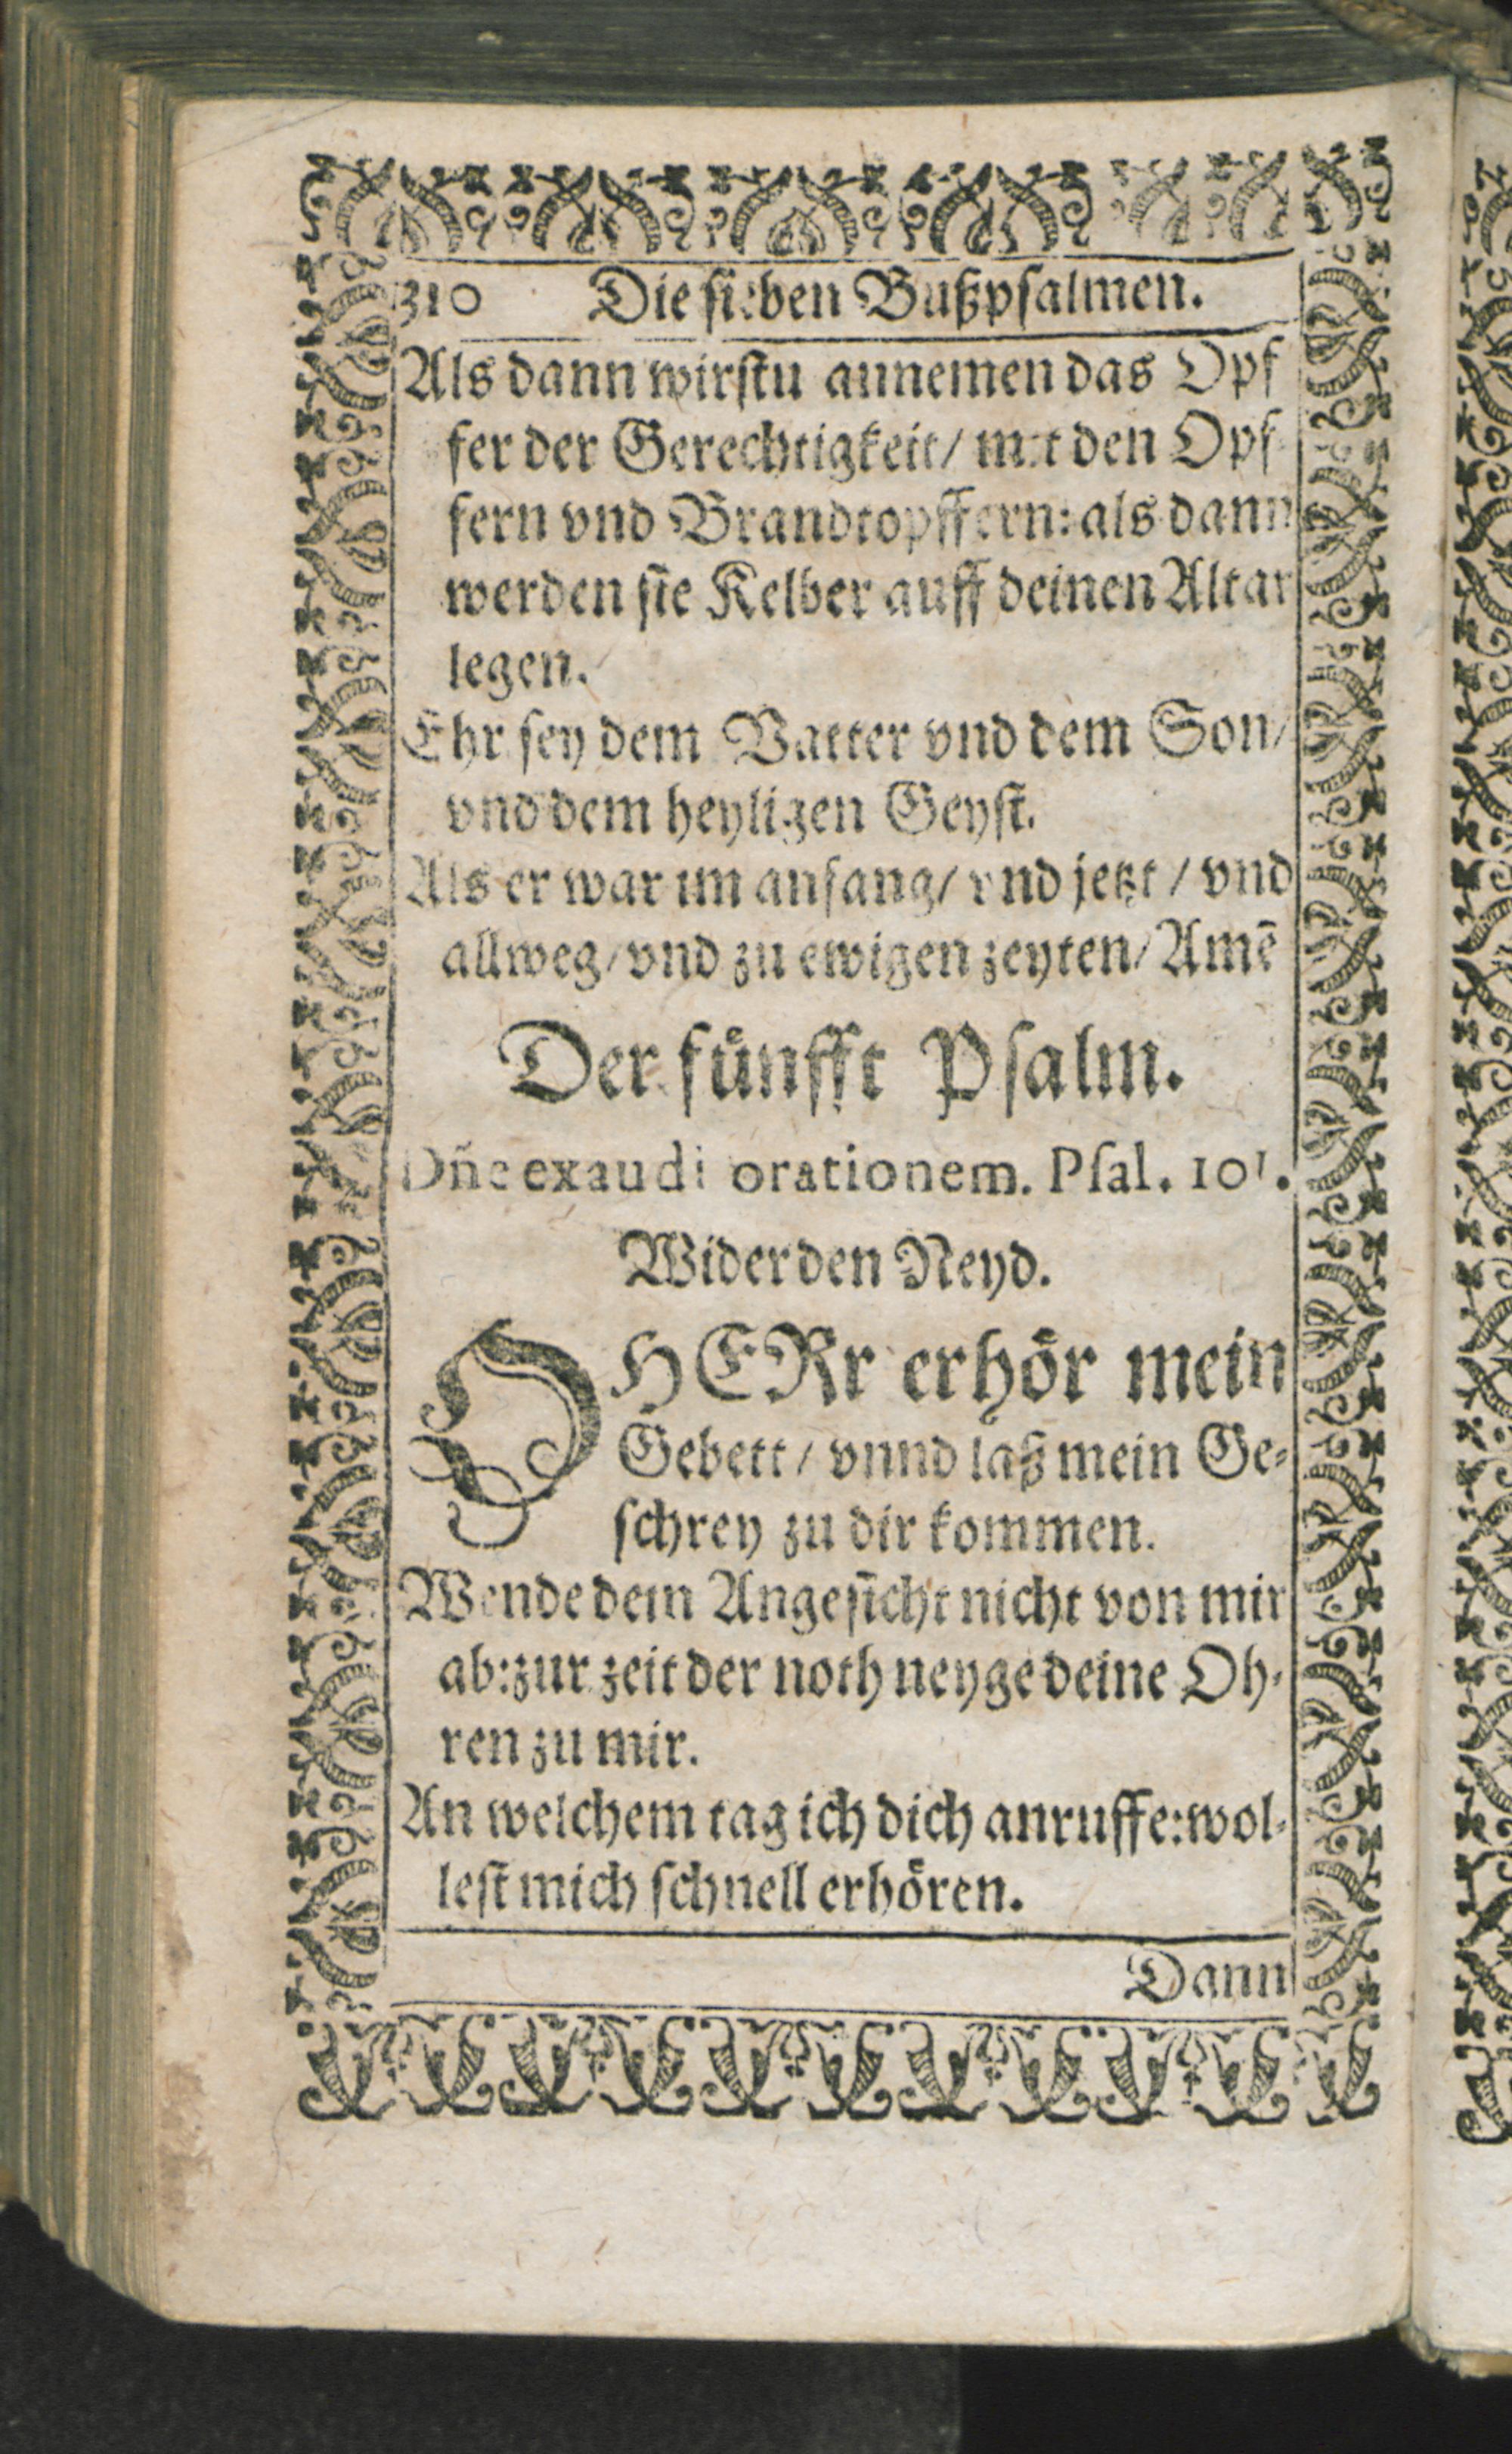 310 Die sieben Bußpsalmen.
Als dann wirstu annemen das Opf
fer der Gerechtigkeit/ mit den Opf
fern vnd Brandtopffern: als dann
werden sie Kelber auff deinen Altar
legen.
Ehr sey dem Vatter vnd dem Son/
vnd dem heyligen Geyst.
Als er war im anfang/ vnd jetzt / vnd
allweg/ vnd zu ewigen zeyten/ Amē
Der fuͤnfft Psalm.
Dñe exaudi orationem. Psal. 101.
Wider den Neyd.
O HERr erhoͤr mein
Gebett / vnnd laß mein Ge-
schrey zu dir kommen.
Wende dein Angesicht nicht von mir
ab: zur zeit der noth neyge deine Oh-
ren zu mir.
An welchem tag ich dich anruffe: wol-
lest mich schnell erhoͤren.
Dann